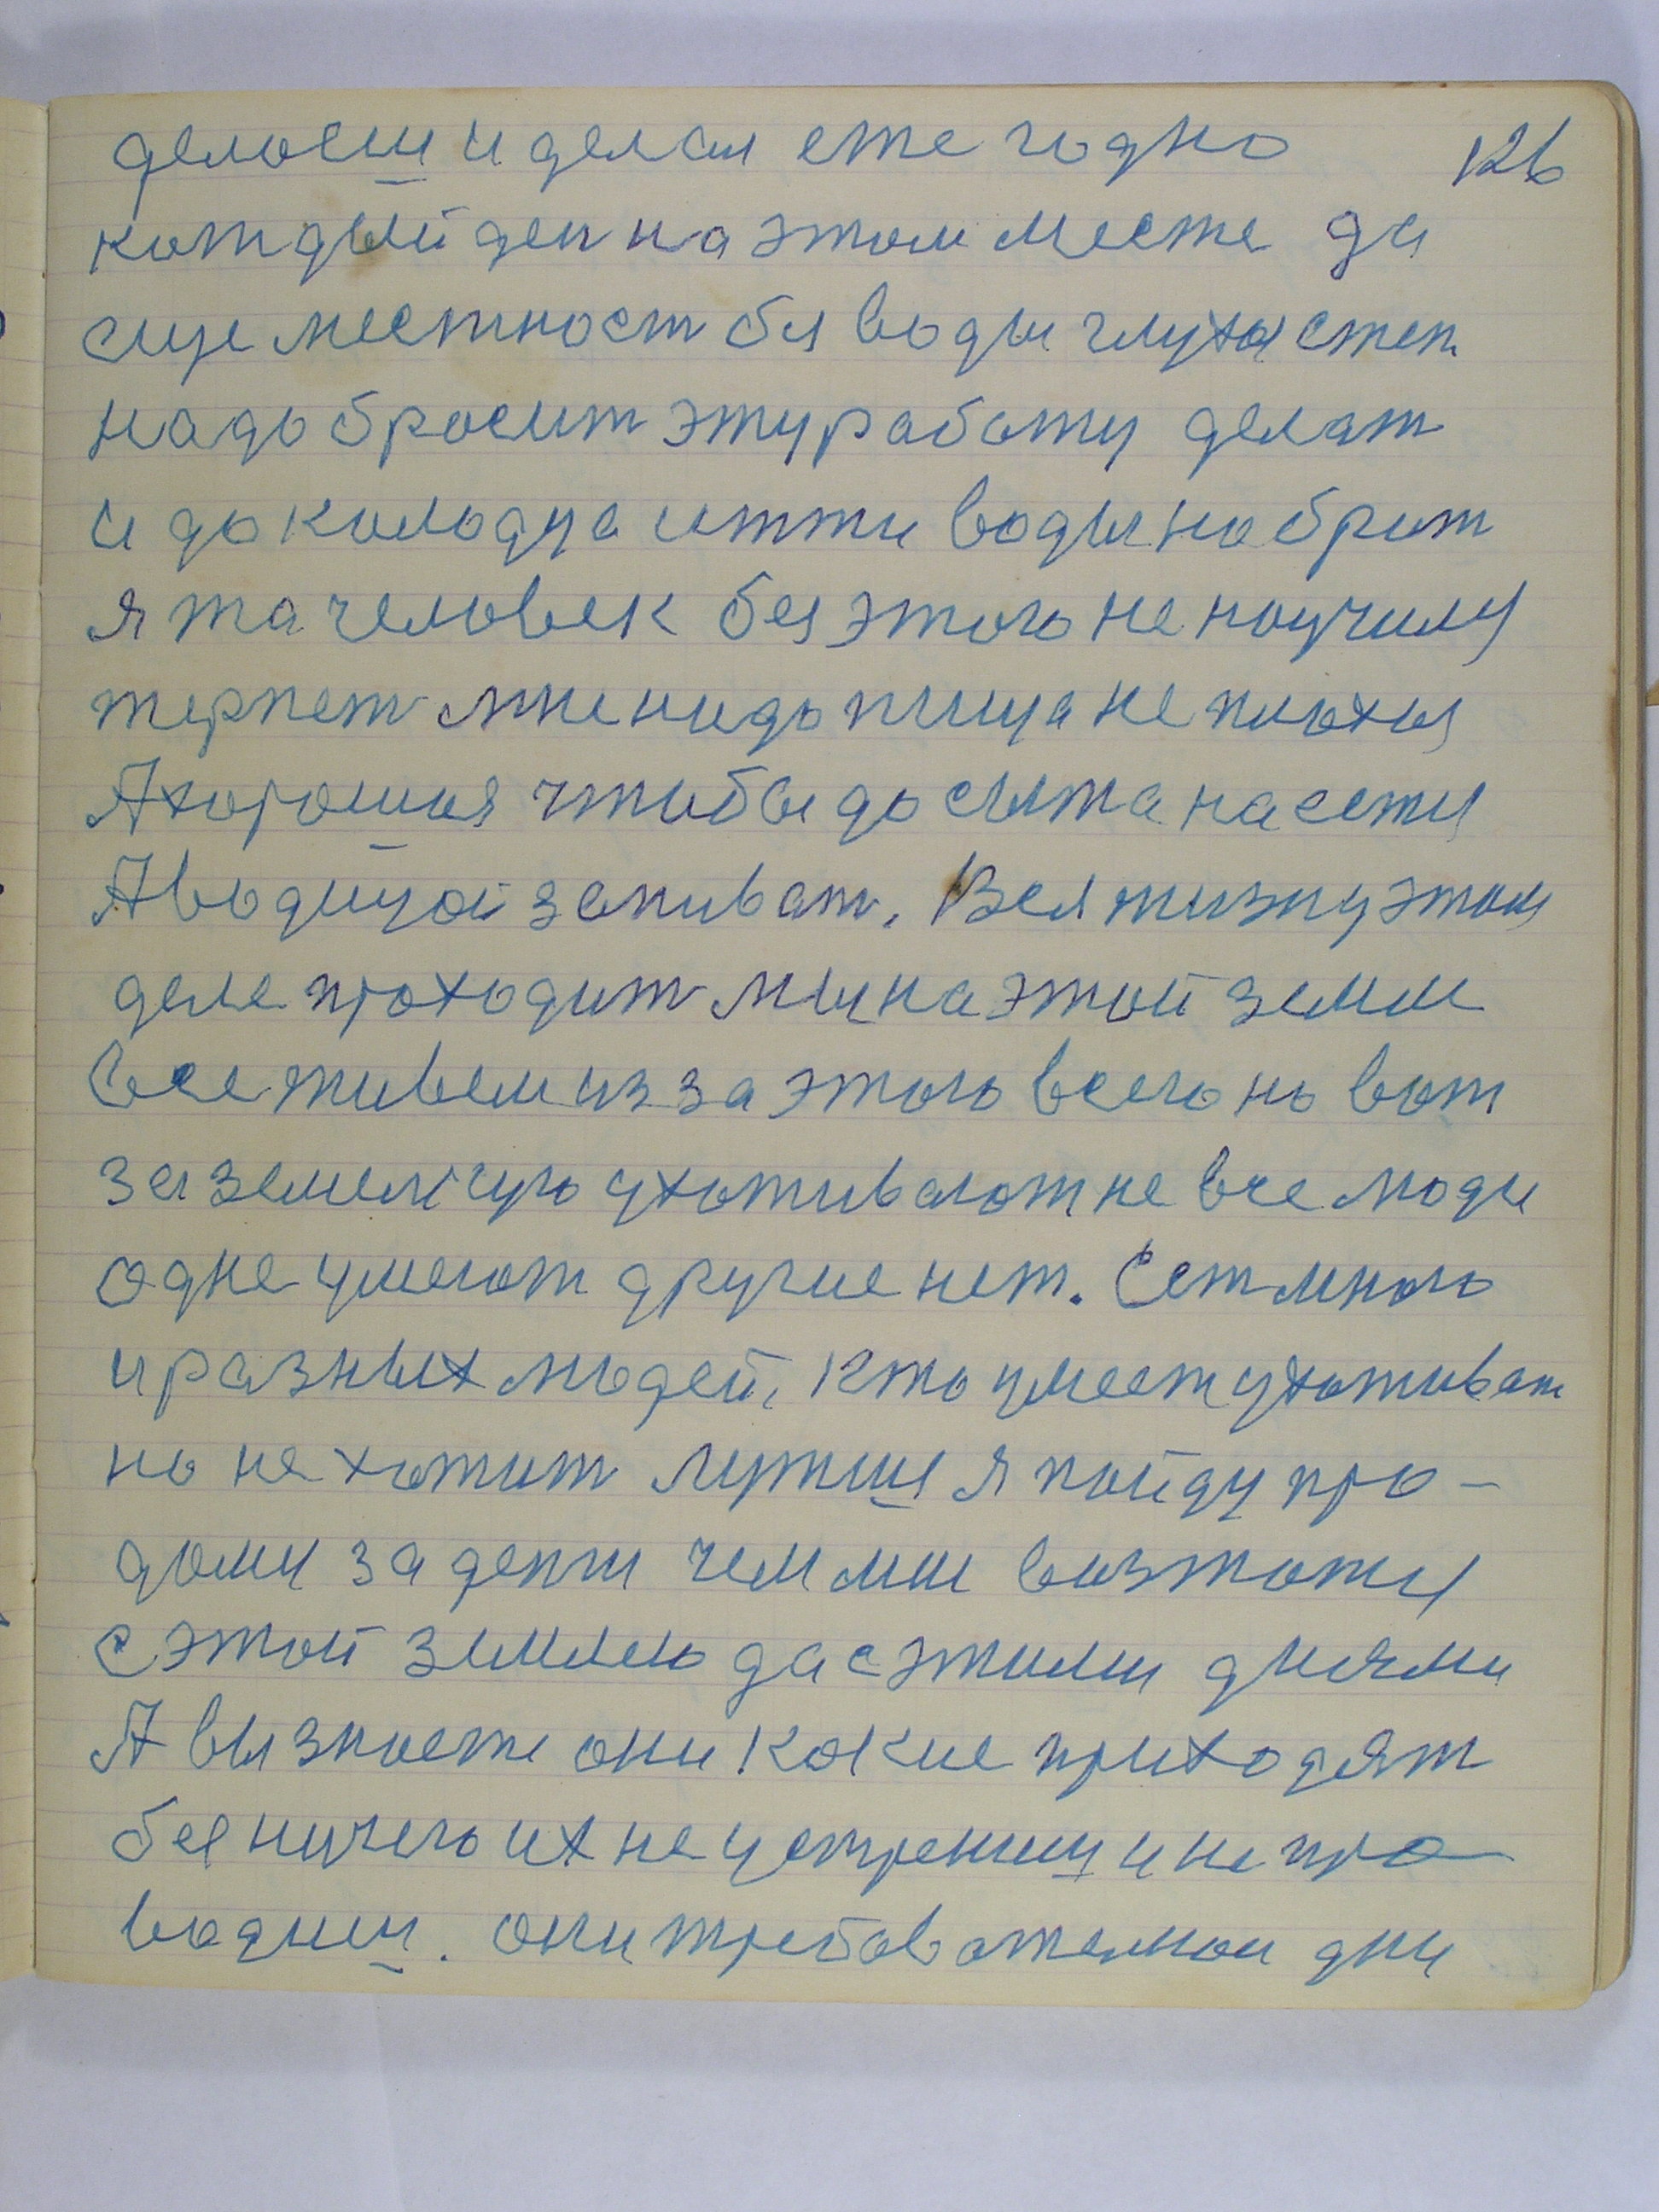 делоеш и делаи еже годно 126
кождый ден на этом месте да
еще местност без воды глухая степ
надо бросит эту работу делат
и до колодца итти воды набрат
я та человек без этого не научилу
терпет мне надо пища не плохая
А хорошая чтобы до сыта наесты
А водицой запиват. Вся жизн у этом
деле проходит мы на этой земли
все живем из за этого всего но вот
за землицую ухаживают не все люди
одне умеют другие нет. Ест много
и разных людей, кто умеет ухаживат
но не хотит лутше я пойду про-
дому за денги чем мни возтоты
с этой землею да с этими днями
А вы знаете они какие приходят
без ничего их не устрениш и не про
водиш. они требователнои дни